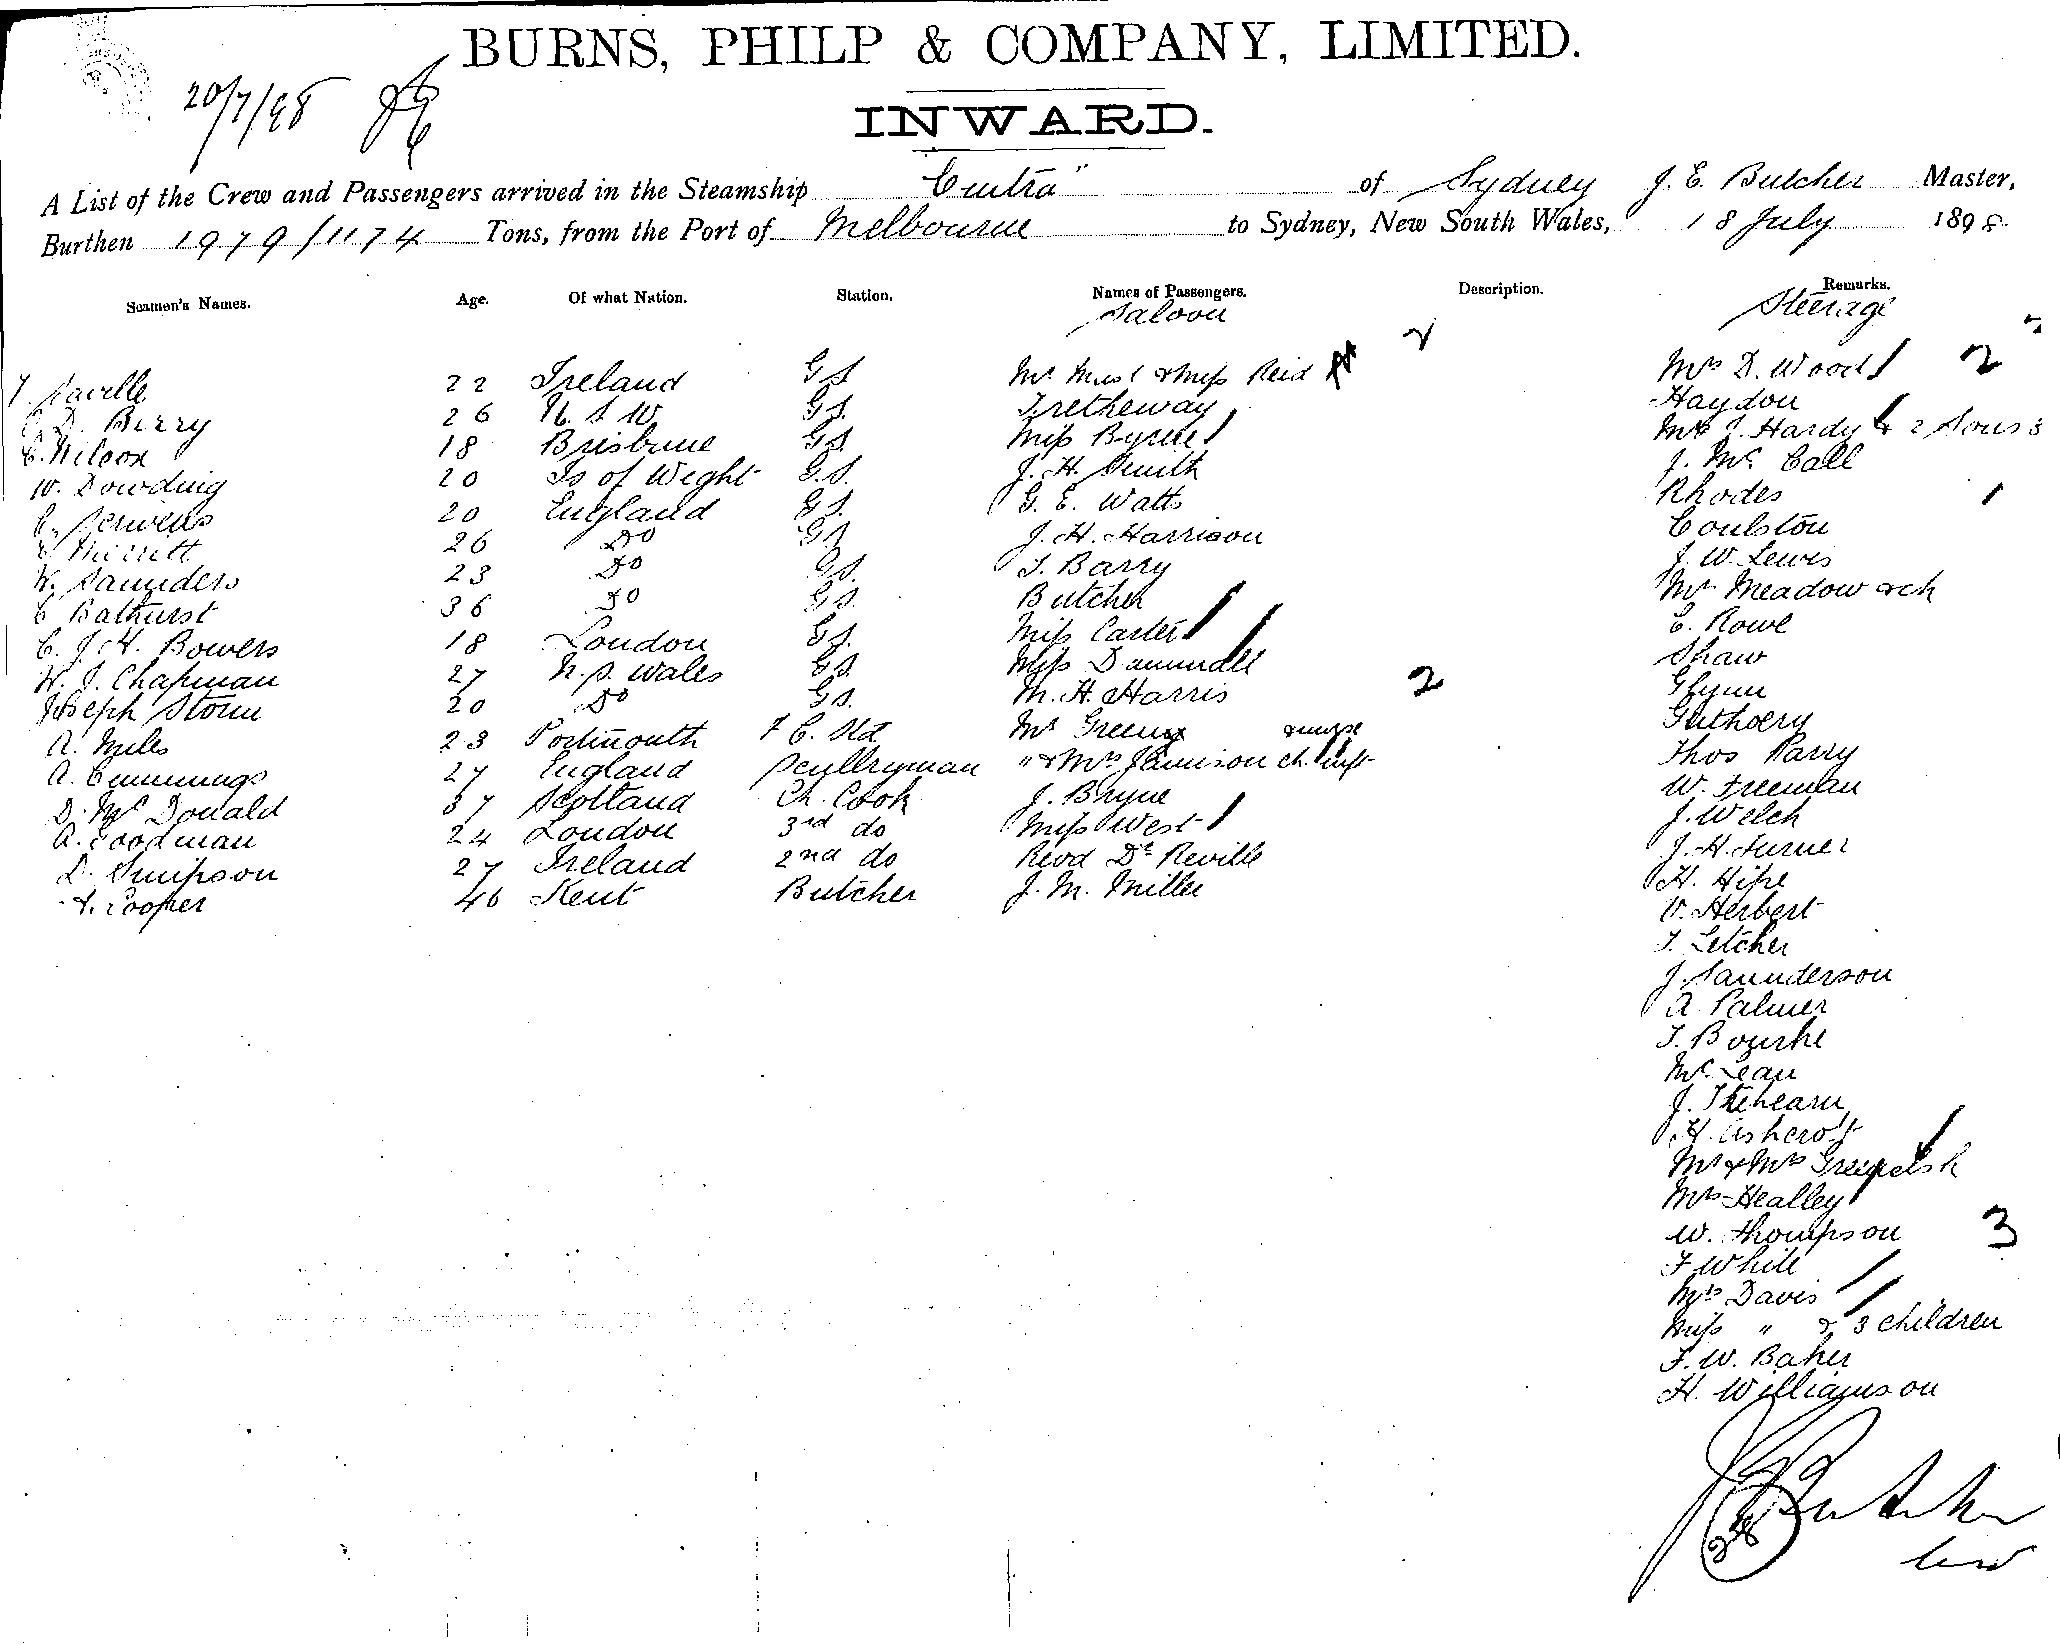 BURNS, PHILP & COMPANY, LIMITED.
20/7/98
INWARD.
A List of the Crew and Passengers arrived in the Steamship Cintra" of Sydney J. E. Butcher Master,
Burthen 1979/1174 Tons, from the Port of Melbourne to Sydney, New South Wales, 18 July 1898
Seamen's Names. Age. Of what Nation. Station. Names of Passengers. Description. Remarks.
Saloon Steerage
2
Saville 22 Ireland G S Mr & Miss Reid Mrs D. Wood 2
D. Berry 26 N. S W G S. Tretheway Haydon
C. Wilcox 18 Brisbane G S. Miss Byrne J. Hardy & 2 Sons 3
W. Dowding 20 Is of Weght G. S. J. H. Smith J. Mc Call
20 England G S. G. E. Watts Rhodes 1
Merrett 26 Do G S J. H. Harrison Coulston
W. Saunders 23 Do G S. T. Barry J. W. Lewis
C Bathurst 36 Do G S. Butcher Mr Meadow & ch
C. J. H. Bowers 18 London G S. Miss Carter E. Rowe
W. J. Chapman 27 N. S. Wales G S. Miss Shaw
Joseph Storm 20 Do G S. M. H. Harris 2 Glynn
A. Miles 23 Portmouth F C. Std Mr Greeny & nurse Guthoery
A. Cummings 27 England Scullryman " & Mrs Jamison ch. & inft Thos Parry
D. Mc Donald 37 Scotland Ch. Cook J. Bryne W. Freeman
A. Goodman 24 London 3rd do Miss West J. Welch
D. Simpson 27 Ireland 2nd do Revd Dr Reville J. H. Turner
Cooper 46 Kent Butcher J. M. Miller H. Hipe
V. Herbert
T. Letcher
J. Saunderson
A. Palmer
T. Bourke
McLean
J. Trehearn
H. Ashcroft
Mr & Mrs
Mrs Healley
W. Thompson 3
F White
Mrs Davis
Miss " & 3 children
F. W. Baker
H. Williamson
J E Butcher